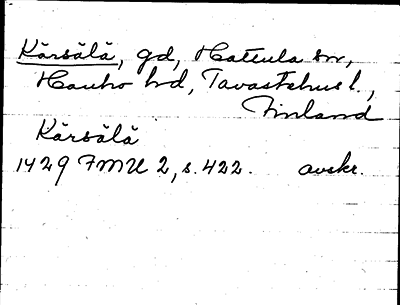 Kärsälä, gd, Hattula sn,
Hauho hd, Tavastehus l.,
Finland
Kärsälä
1429 FMU 2, s. 422. avskr.